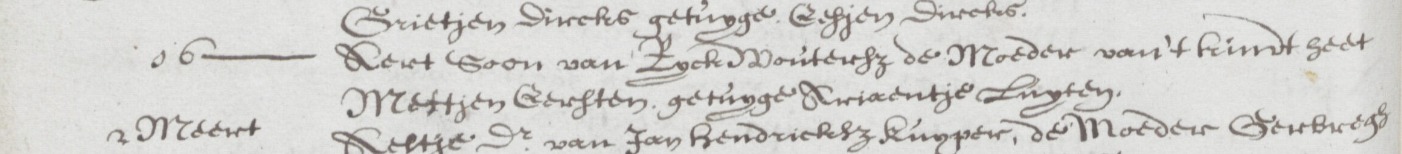 Grietjen Dircks getuyge. Gessjen Dircks.
06 Aert Soon van Ryck Wouterss de Moeder van't kindt heet
Mettjen Gerssten. getuyge Ariaentje Luyten.
2 Meert Aeltje Dr. van Jan hendrickss kuyper, de Moeder Gerbregh